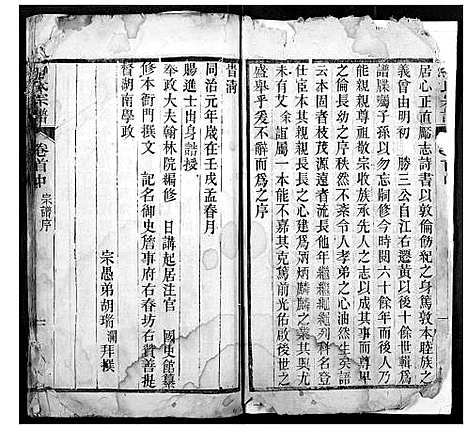 居心正直勵志詩書以敦倫飭紀之身篤敦本睦族之
義曾由明初 勝三公自江右遷黃以後十餘世輯爲
譜牒囑子孫以勿忘嗣修今時閱六十餘年而後人乃
能親親尊祖敬宗收族承先人之志以成其事而尊卑
之倫長幼之序秩然不紊令人孝弟之心油然生矣語
云本固者枝茂源遠者流長他年繼繼繩繩列科名登
仕版其親親長長之心建爲炳炳麟麟之業其與尤
未有艾 余誼屬一本能不嘉其克篤前光佑啟後世之
盛舉乎爰不辭而爲之序
皆清
同治元年歲在壬戌孟春月
賜進士出身誥授
奉政大夫翰林院編修 日講起居注官 國史館纂
修本衙門撰文 記名御史詹事府右春坊右贊善提
督湖南學政
宗愚弟胡瑞瀾拜撰
氏宗譜
卷首中
宗譜序
一